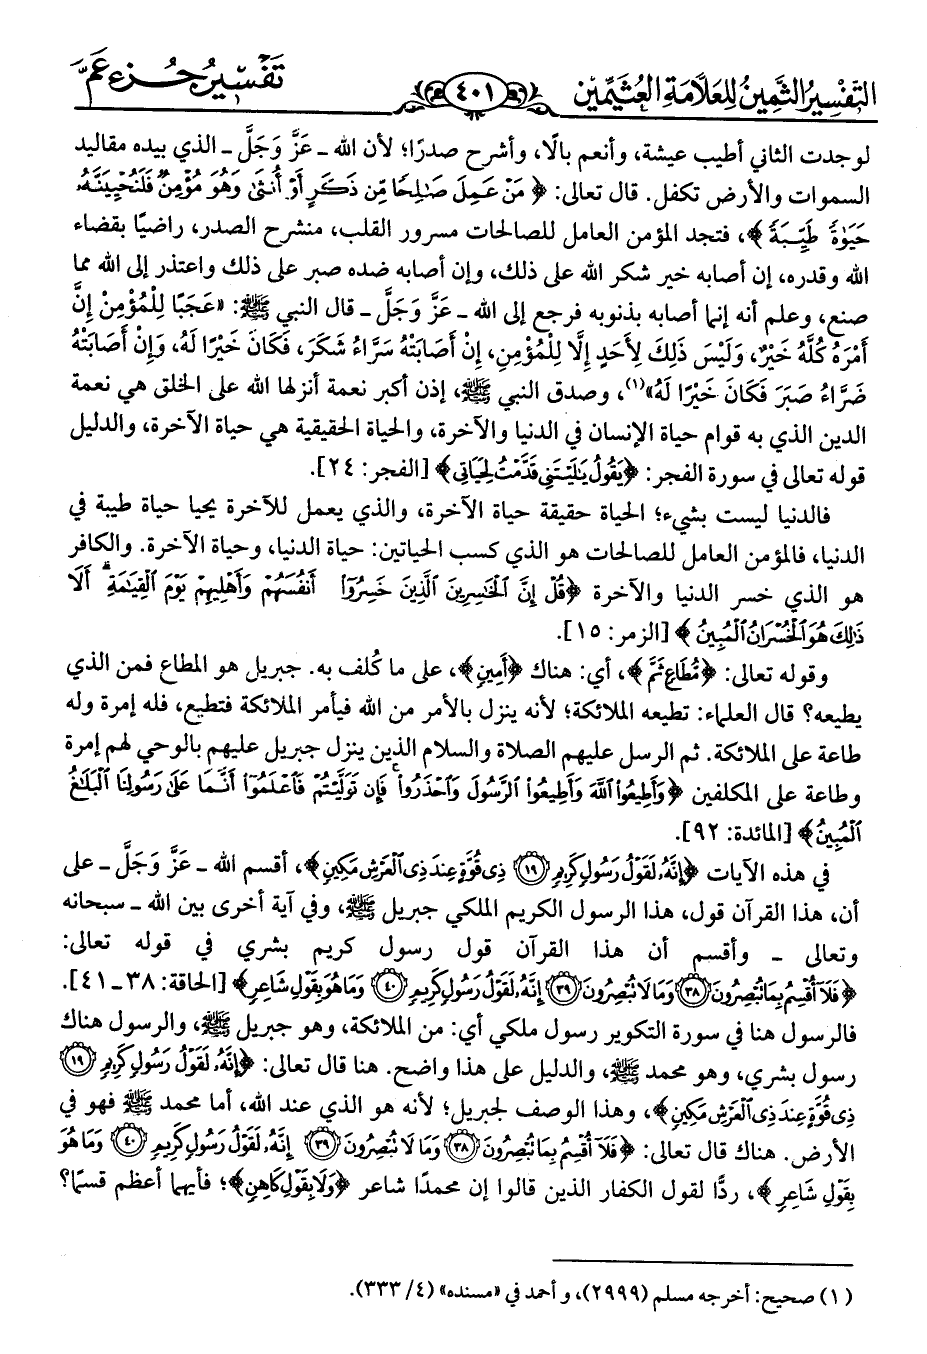 التفسير الثمين للعلامة العثيمين ٤٠١ تفسير جزء عم
لوجدت الثاني أطيب عيشة، وأنعم بالًا، وأشرح صدرًا؛ لأن الله ـ عَزَّ وَجَلَّ ـ الذي بيده مقاليد
السموات والأرض تكفل. قال تعالى: ﴿ مَنْ عَمِلَ صَٰلِحًا مِّن ذَكَرٍ أَوْ أُنثَىٰ وَهُوَ مُؤْمِنٌ فَلَنُحْيِيَنَّهُۥ
حَيَوٰةً طَيِّبَةً ﴾، فتجد المؤمن العامل للصالحات مسرور القلب، منشرح الصدر، راضيًا بقضاء
الله وقدره، إن أصابه خير شكر الله على ذلك، وإن أصابه ضده صبر على ذلك واعتذر إلى الله مما
صنع، وعلم أنه إنما أصابه بذنوبه فرجع إلى الله ـ عَزَّ وَجَلَّ ـ قال النبي ﷺ: «عَجَبًا لِلْمُؤْمِنْ إِنَّ
أَمْرَهُ كُلَّهُ خَيْرٌ، وَلَيْسَ ذَلِكَ لِأَحَدٍ إِلَّا لِلْمُؤْمِنِ، إِنْ أَصَابَتْهُ سَرَّاءُ شَكَرَ، فَكَانَ خَيْرًا لَهُ، وَإِنْ أَصَابَتْهُ
ضَرَّاءُ صَبَرَ فَكَانَ خَيْرًا لَهُ»(١)، وصدق النبي ﷺ، إذن أكبر نعمة أنزلها الله على الخلق هي نعمة
الدين الذي به قوام حياة الإنسان في الدنيا والآخرة، والحياة الحقيقية هي حياة الآخرة، والدليل
قوله تعالى في سورة الفجر: ﴿يَقُولُ يَٰلَيْتَنِى قَدَّمْتُ لِحَيَاتِى﴾ [الفجر: ٢٤].
فالدنيا ليست بشيء؛ الحياة حقيقة حياة الآخرة، والذي يعمل للآخرة يحيا حياة طيبة في
الدنيا، فالمؤمن العامل للصالحات هو الذي كسب الحياتين: حياة الدنيا، وحياة الآخرة. والكافر
هو الذي خسر الدنيا والآخرة ﴿قُلْ إِنَّ ٱلْخَٰسِرِينَ ٱلَّذِينَ خَسِرُوٓا۟ أَنفُسَهُمْ وَأَهْلِيهِمْ يَوْمَ ٱلْقِيَٰمَةِ ۗ أَلَا
ذَٰلِكَ هُوَ ٱلْخُسْرَانُ ٱلْمُبِينُ ﴾ [الزمر: ١٥].
وقوله تعالى: ﴿مُّطَاعٍ ثَمَّ ﴾، أي: هناك ﴿أَمِينٍ﴾، على ما كُلف به. جبريل هو المطاع فمن الذي
يطيعه؟ قال العلماء: تطيعه الملائكة؛ لأنه ينزل بالأمر من الله فيأمر الملائكة فتطيع، فله إمرة وله
طاعة على الملائكة. ثم الرسل عليهم الصلاة والسلام الذين ينزل جبريل عليهم بالوحي لهم إمرة
وطاعة على المكلفين ﴿وَأَطِيعُوا۟ ٱللَّهَ وَأَطِيعُوا۟ ٱلرَّسُولَ وَٱحْذَرُوا۟ ۚ فَإِن تَوَلَّيْتُمْ فَٱعْلَمُوٓا۟ أَنَّمَا عَلَىٰ رَسُولِنَا ٱلْبَلَٰغُ
ٱلْمُبِينُ﴾ [المائدة: ٩٢].
في هذه الآيات ﴿إِنَّهُۥ لَقَوْلُ رَسُولٍ كَرِيمٍ ١٩ ذِى قُوَّةٍ عِندَ ذِى ٱلْعَرْشِ مَكِينٍ﴾، أقسم الله ـ عَزَّ وَجَلَّ ـ على
أن، هذا القرآن قول، هذا الرسول الكريم الملكي جبريل ﷺ، وفي آية أخرى بين الله ـ سبحانه
وتعالى ـ وأقسم أن هذا القرآن قول رسول كريم بشري في قوله تعالى:
﴿فَلَآ أُقْسِمُ بِمَا تُبْصِرُونَ ٣٨ وَمَا لَا تُبْصِرُونَ ٣٩ إِنَّهُۥ لَقَوْلُ رَسُولٍ كَرِيمٍ ٤٠ وَمَا هُوَ بِقَوْلِ شَاعِرٍ﴾ [الحاقة: ٣٨ـ ٤١].
فالرسول هنا في سورة التكوير رسول ملكي أي: من الملائكة، وهو جبريل ﷺ، والرسول هناك
رسول بشري، وهو محمد ﷺ، والدليل على هذا واضح. هنا قال تعالى: ﴿إِنَّهُۥ لَقَوْلُ رَسُولٍ كَرِيمٍ ١٩
ذِى قُوَّةٍ عِندَ ذِى ٱلْعَرْشِ مَكِينٍ﴾، وهذا الوصف لجبريل؛ لأنه هو الذي عند الله، أما محمد ﷺ فهو في
الأرض. هناك قال تعالى: ﴿فَلَآ أُقْسِمُ بِمَا تُبْصِرُونَ ٣٨ وَمَا لَا تُبْصِرُونَ ٣٩ إِنَّهُۥ لَقَوْلُ رَسُولٍ كَرِيمٍ ٤٠ وَمَا هُوَ
بِقَوْلِ شَاعِرٍ ﴾، ردًّا لقول الكفار الذين قالوا إن محمدًا شاعر ﴿وَلَا بِقَوْلِ كَاهِنٍ﴾؛ فأيهما أعظم قسمًا؟
(١) صحيح: أخرجه مسلم (٢٩٩٩)، وأحمد في «مسنده» (٤/ ٣٣٣).